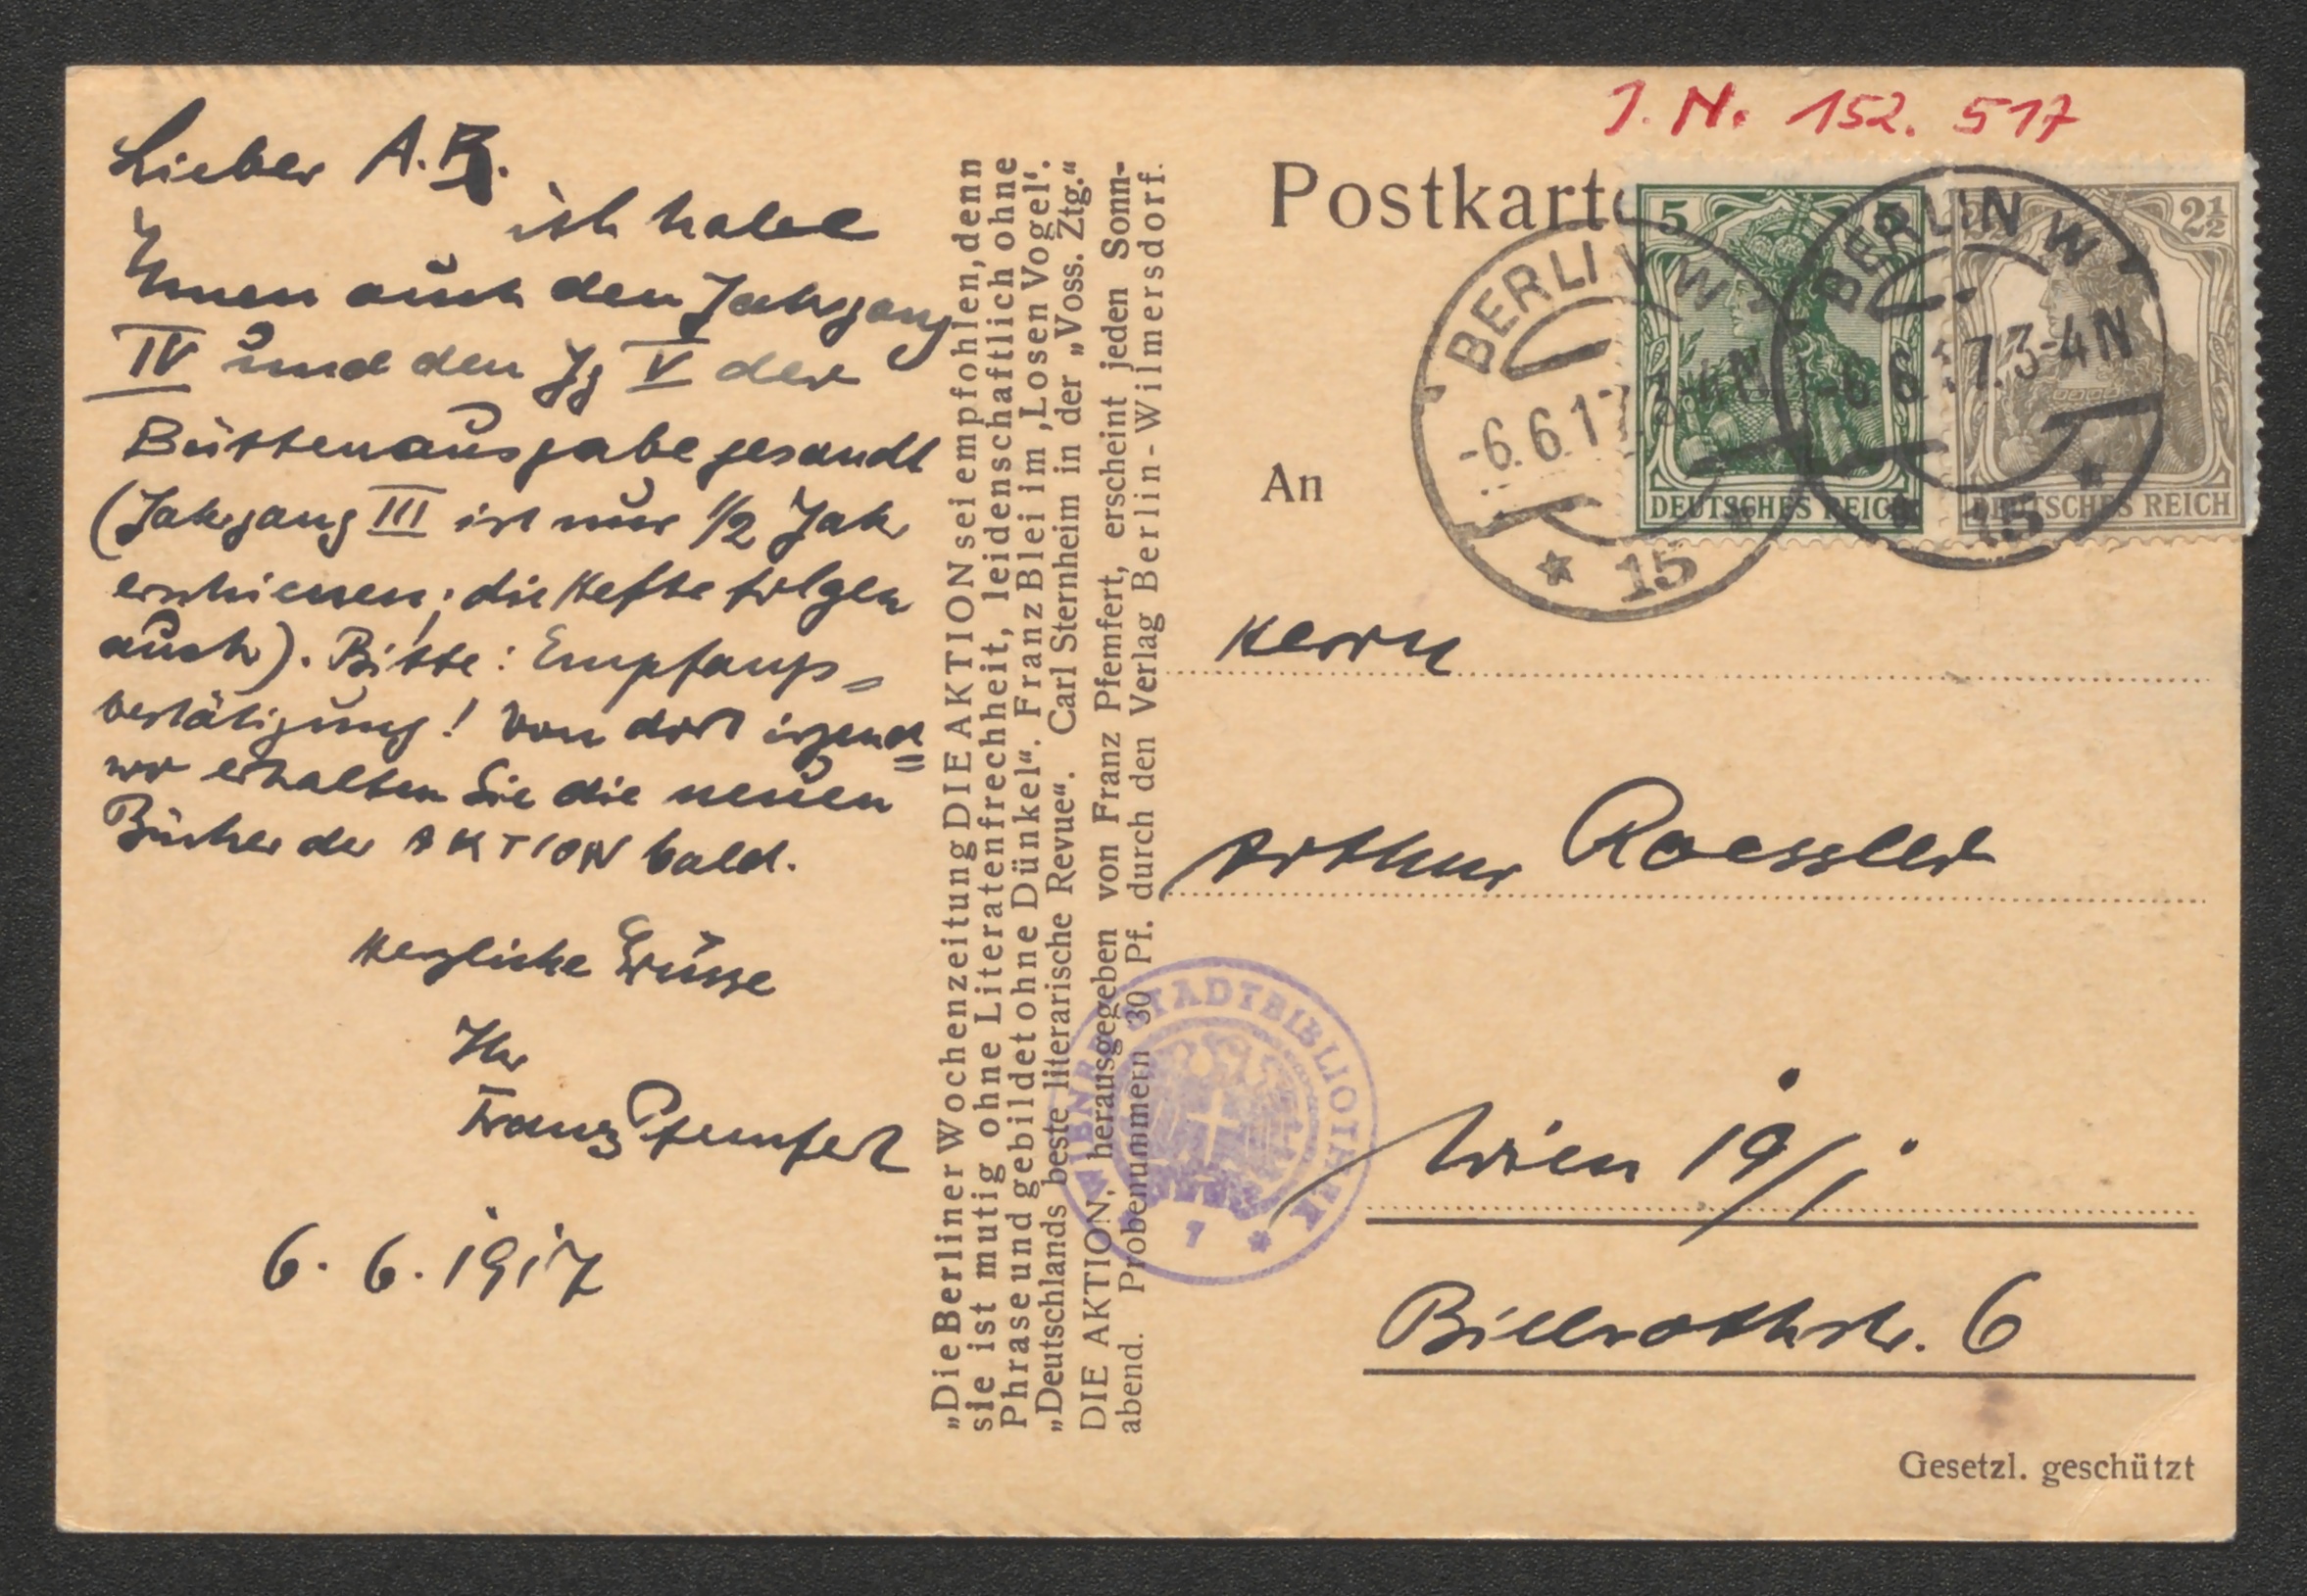 Lieber A. R.
ich habe
Ihnen auch den Jahrgang
IV und den Jg V der
Büttenausgabe gesandt
(Jahrgang III ist nur 1/2 Jahr
erschienen; die Hefte folgen
auch). Bitte: Empfangs=
bestätigung! Von dort irgend=
wo erhalten Sie die neuen
Bücher der AKTION bald.
Herzliche Grüsse
Ihr
Franz Pfemfert
6. 6. 1917
„Die Berliner Wochenzeitung DIE AKTION sei empfohlen, denn
sie ist mutig ohne Literatenfrechheit, leidenschaftlich ohne
Phrase und gebildet ohne Dünkel“. Franz Blei im ‚Losen Vogel‘.
„Deutschlands beste literarische Revue“. Carl Sternheim in der „Voss. Ztg.“
DIE AKTION, herausgegeben von Franz Pfemfert, erscheint jeden Sonn-
abend. Probenummern 30 Pf. durch den Verlag Berlin-Wilmersdorf.
J. N. 152. 517
Postkarte
5 5
2½
BERLIN W
-6.6.17.3-4N
* 15 *
BERLIN W
-6.6.17.3-4N
* 15 *
DEUTSCHES REICH
DEUTSCHES REICH
An
Herrn
Arthur Roessler
Wien 19/1
Billrothstr. 6
WIENER STADTBIBLIOTHEK
Gesetzl. geschützt